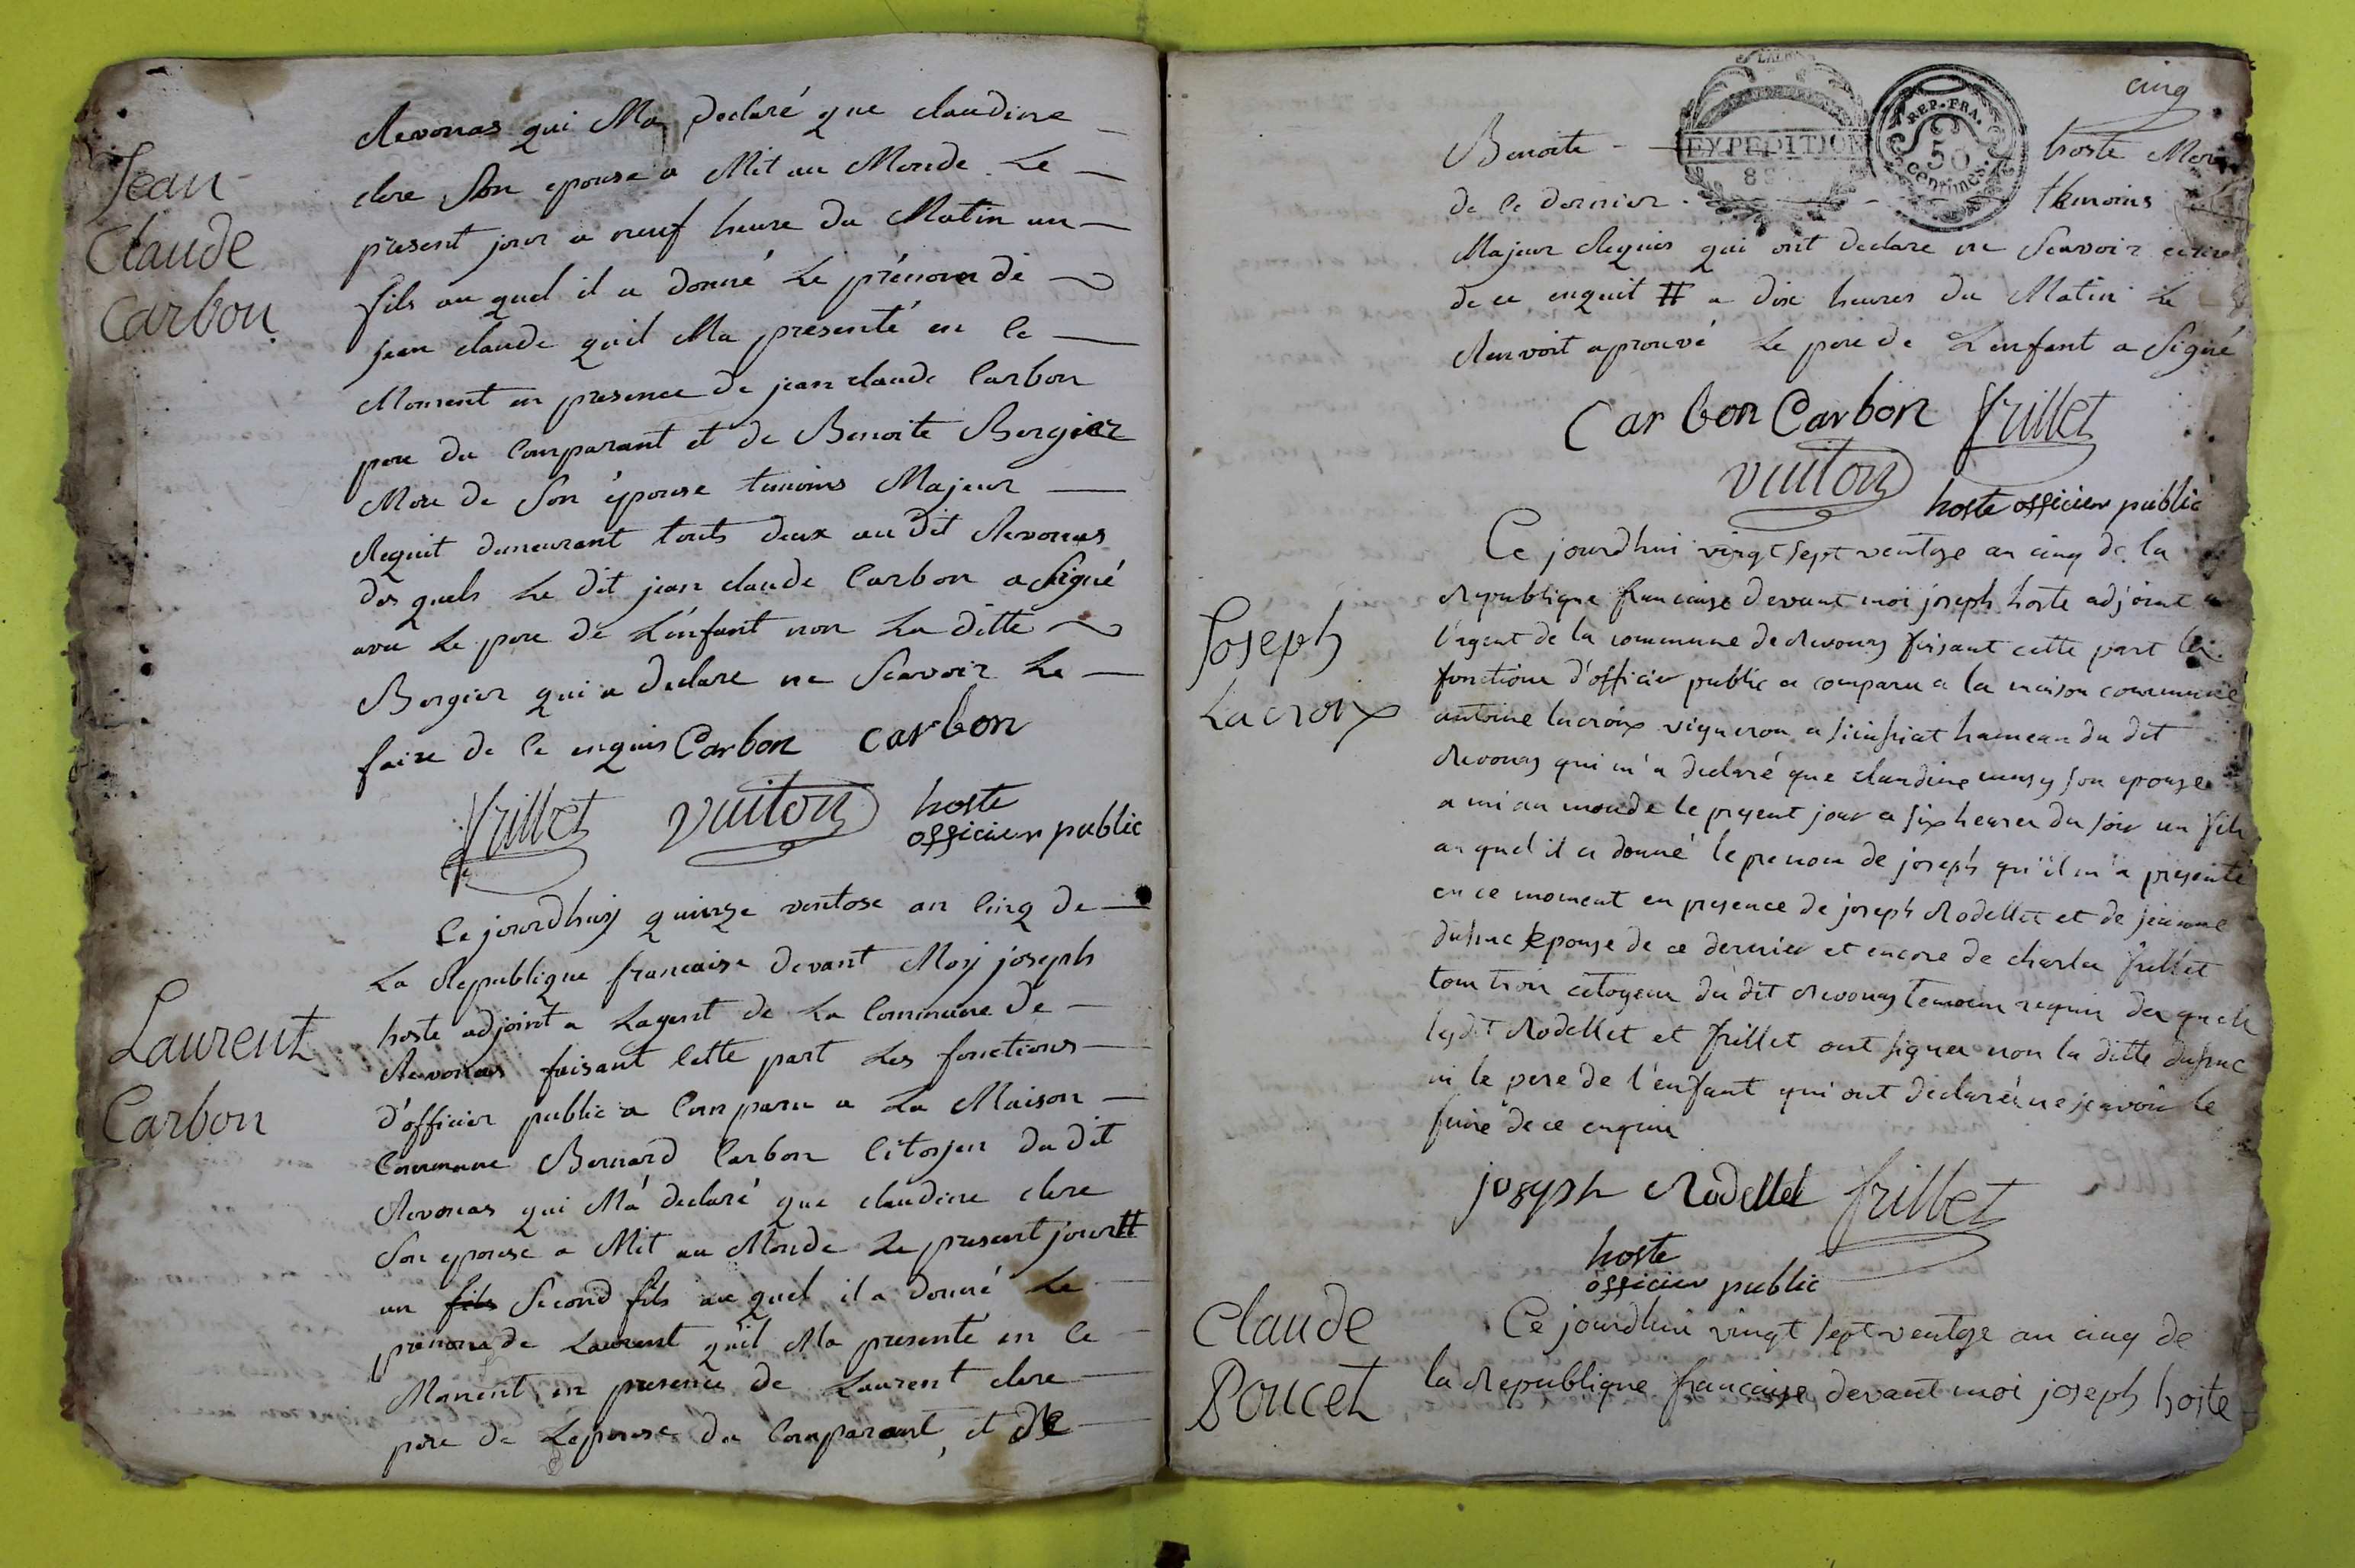 Jean
Claude
Carbon
Revonas qui Ma Declaré que claudine
clere Son epouse a Mit au Monde Le
présent jour a neuf heure du Matin un
fils au quel il a donné Le prénom de
jean claude quil Ma presenté en ce
Moment en presence de jean claude Carbon
pere du Comparant et de Benoite Bergier
Mere de Son épouse temoins Majeur
Requit demeurant touts deux au Dit Revonas
des quels Le Dit jean claude Carbon a Signé
avec Le pere de L'enfant non La ditte
Bergier qui a declare ne Scavoir Le
faire de ce enquis Carbon carbon
frillet vuiton hoste
officier public
Laurent
Carbon
Ce jourdhuy quinze ventose an Cinq de
La Republique francaise devant Moy joseph
hoste adjoint a Lagent de La Commune de
Revonas faisant Cette part Les fonctions
d'officier public a Comparu a La Maison
Commune Bernard Carbon Citoyen du dit
Revonas qui M'a declaré que claudine clere
Son epouse a Mit au Monde Le present jour #
un fils Second fils au quel il a donné Le
prénom de Laurent quil Ma presenté en Ce
Moment en presence de Laurent clere
pere de Lepouse du Comparant, et de
cinq
EXPEDITION
REP. FRA.
50
centimes.
Benoite hoste Mere
de Ce dernier temoins
Majeur Requis qui ont declare ne Scavoir ecrire
de ce enquit # a dix heures du Matin Le
Renvoit aprouvé Le pere de Lenfant a Signé
Carbon Carbon frillet
vuiton
hoste officier public
Joseph
Lacroix
Ce jourdhui vingt sept ventose an cinq de la
republique francaise devant moi joseph hoste adjoint a
l'agent de la commune de Revonas faisant cette part les
fonctions d'officier public a comparu a la maison commune
antoine lacroix vigneron a hameau du dit
Revonas qui m'a declaré que claudine son epouse
a mi au monde le present jour a six heures du soir un fils
au quel il a donné le prenom de joseph qu'il m'a presenté
en ce moment en presence de joseph Rodellet et de jeanne
epouse de ce dernier et encore de charles frillet
tous trois citoyens du dit Revonas temoins requis des quels
lesdit Rodellet et frillet ont signes non la ditte
ni le pere de l'enfant qui ont declaré ne scavoir le
faire de ce enquis
joseph Rodellet frillet
hoste
officier public
Claude
Poucet
Ce jourdhui vingt sept ventose an cinq de
la Republique francaise devant moi joseph hoste